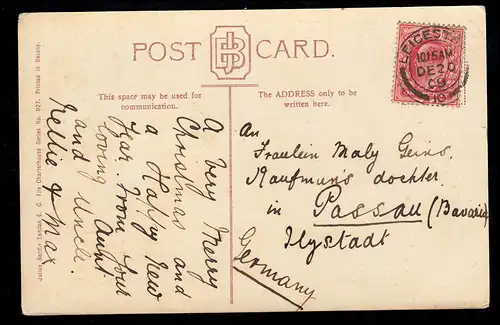 POST CARD.
This space may be used for
communication.
The ADDRESS only to be
written here.
A very Merry
Christmas and
a Happy New
Year. From Your
loving Aunt
and Uncle.
Nellie & Max.
An
Fräulein Maly Geins.
Kaufmann's dochter.
in Passau (Bavaria)
Ilystadt
Germany
LEICESTER
10.15AM
DE 20
09
Julius Bendix, London, E. C. The Charterhouse Series No. 977. Printed in Saxony.